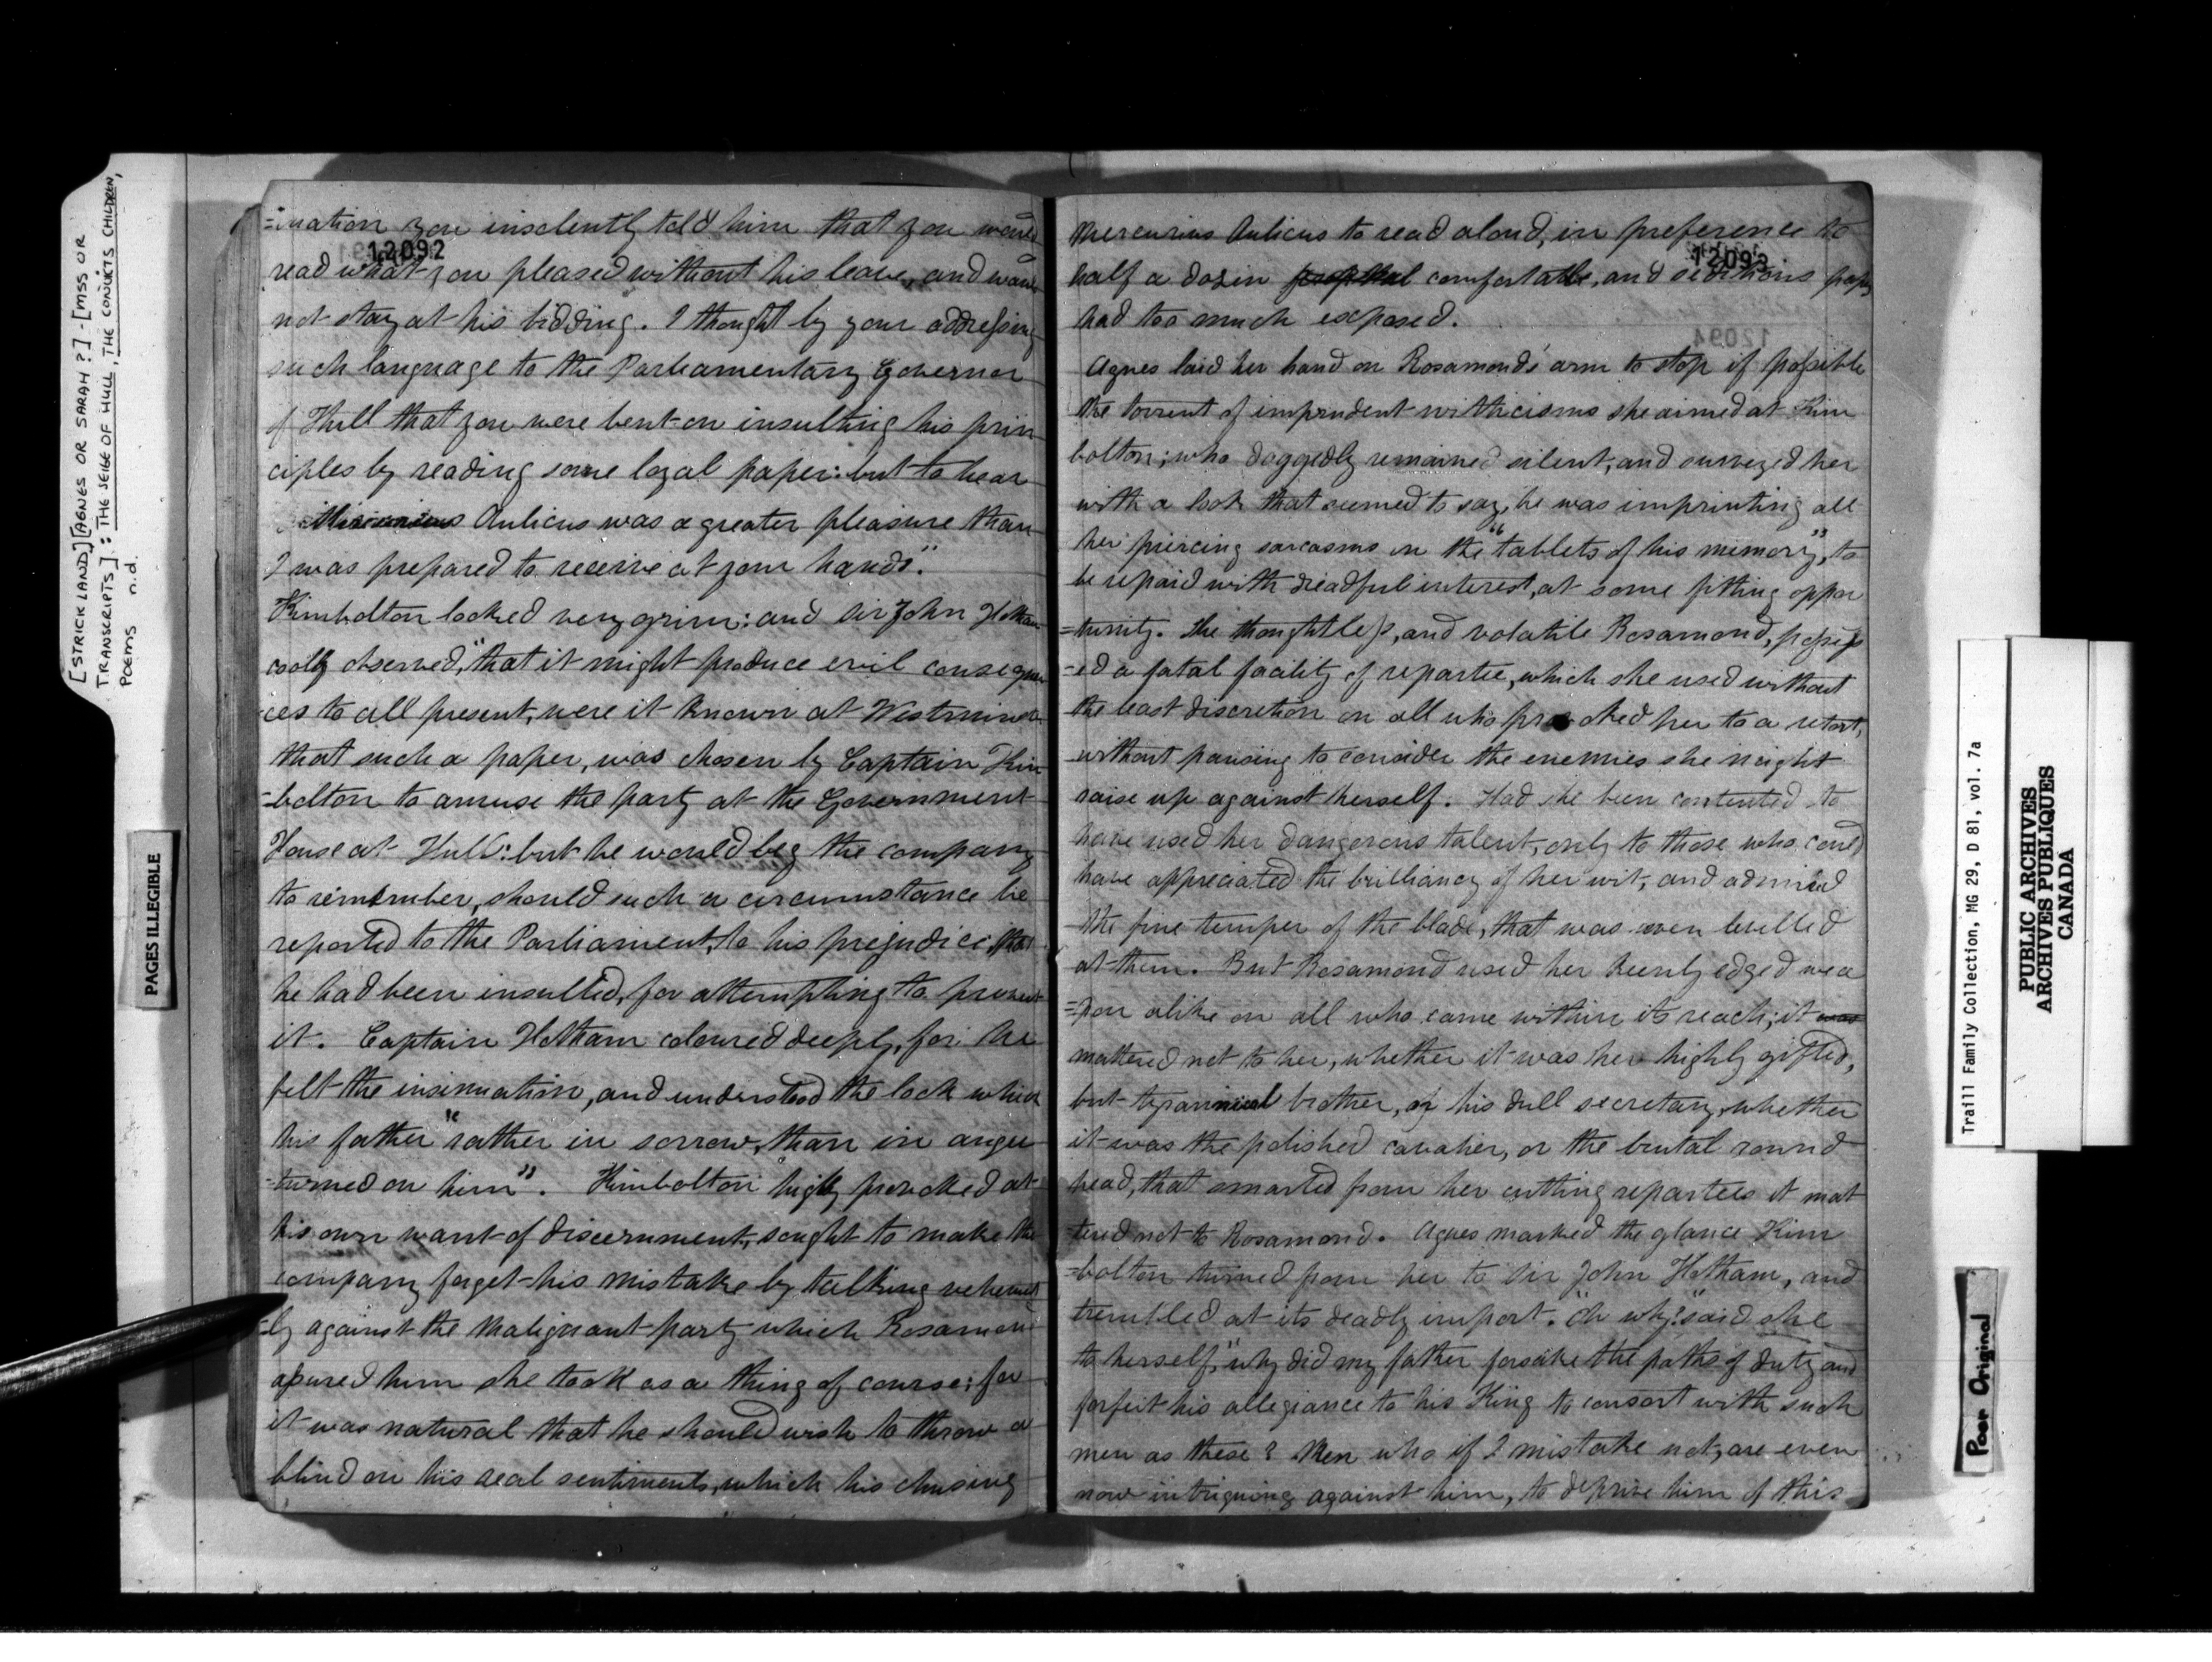 [STRICKLAND] [AGNES OR SARAH ?] - [MSS OR
TRANSCRIPTS] : THE SEIGE OF HULL, THE CONVICTS CHILDREN,
POEMS n.d.
PAGES ILLEGIBLE
12092
=ination you insolently told him that you would
read what you pleased without his leave, and would
not stay at his bidding. I thought by your addressing
such language to the Parliamentary Governor
of Hull that you were bent on insulting his prin
ciples by reading some loyal paper: but to hear
Mercurius Aulicus was a greater pleasure than
I was prepared to receive at your hands".
Kimbolton looked very grim: and Sir John Hotham
coolly observed, "that it might produce evil consequen
ces to all present, were it known at Westminster
that such a paper, was chosen by Captain Kim
=bolton to amuse the party at the Government
House at Hull: but he would beg the company
to remember, should such a circumstance be
reported to the Parliament, to his prejudice that
he had been insulted, for attempting to prevent
it. Captain Hotham coloured deeply, for he
felt the insinuation, and understood the look which
his father "rather in sorrow, than in anger
turned on him". Kimbolton highly provoked at
his own want of discernment, sought to make the
company forget his mistake by talking vehement
=ly against the Malignant party which Rosamond
assured him she took as a thing of course; for
it was natural that he should wish to throw a
blind on his real sentiments, which his chusing
12093
12094
Mercurius Aulicus to read aloud, in preference to
half a dozin comfortable, and seditious papers
had too much exposed.
Agnes laid her hand on Rosamond's arm to stop if possible
the torrent of imprudent witticisms she aimed at Kim
bolton; who doggedly remained silent, and surveyed her
with a look that seemed to say, he was imprinting all
her piercing sarcasms on the "tablets of his memory", to
be repaid with dreadful interest, at some fitting oppor
=tunity. The thoughtless, and volatile Rosamond, possess
=ed a fatal facility of repartee, which she used without
the least discretion on all who provoked her to a retort,
without pausing to consider the enemies she might
raise up against herself. Had she been contented to
have used her dangerous talent, only to those who could
have appreciated the brilliancy of her wit, and admired
the fine temper of the blade, that was even levelled
at them. But Rosamond used her keenly edged wea
=pon alike on all who came within its reach; it was
mattered not to her, whether it was her highly gifted,
but tyrannical brother, or his dull secretary, whether
it was the polished cavalier, or the brutal round
head, that smarted from her cutting repartees it mat
tered not to Rosamond. Agnes marked the glance Kim
=bolton turned from her to Sir John Hotham, and
trembled at its deadly import. "Oh why?" said she
to herself, "why did my father forsake the paths of duty and
forfeit his allegiance to his King to consort with such
men as these? Men who if I mistake not, are even
now intriguing against him, to deprive him of this
Traill Family Collection, MG 29, D 81, vol. 7a
PUBLIC ARCHIVES
ARCHIVES PUBLIQUES
CANADA
Poor Original